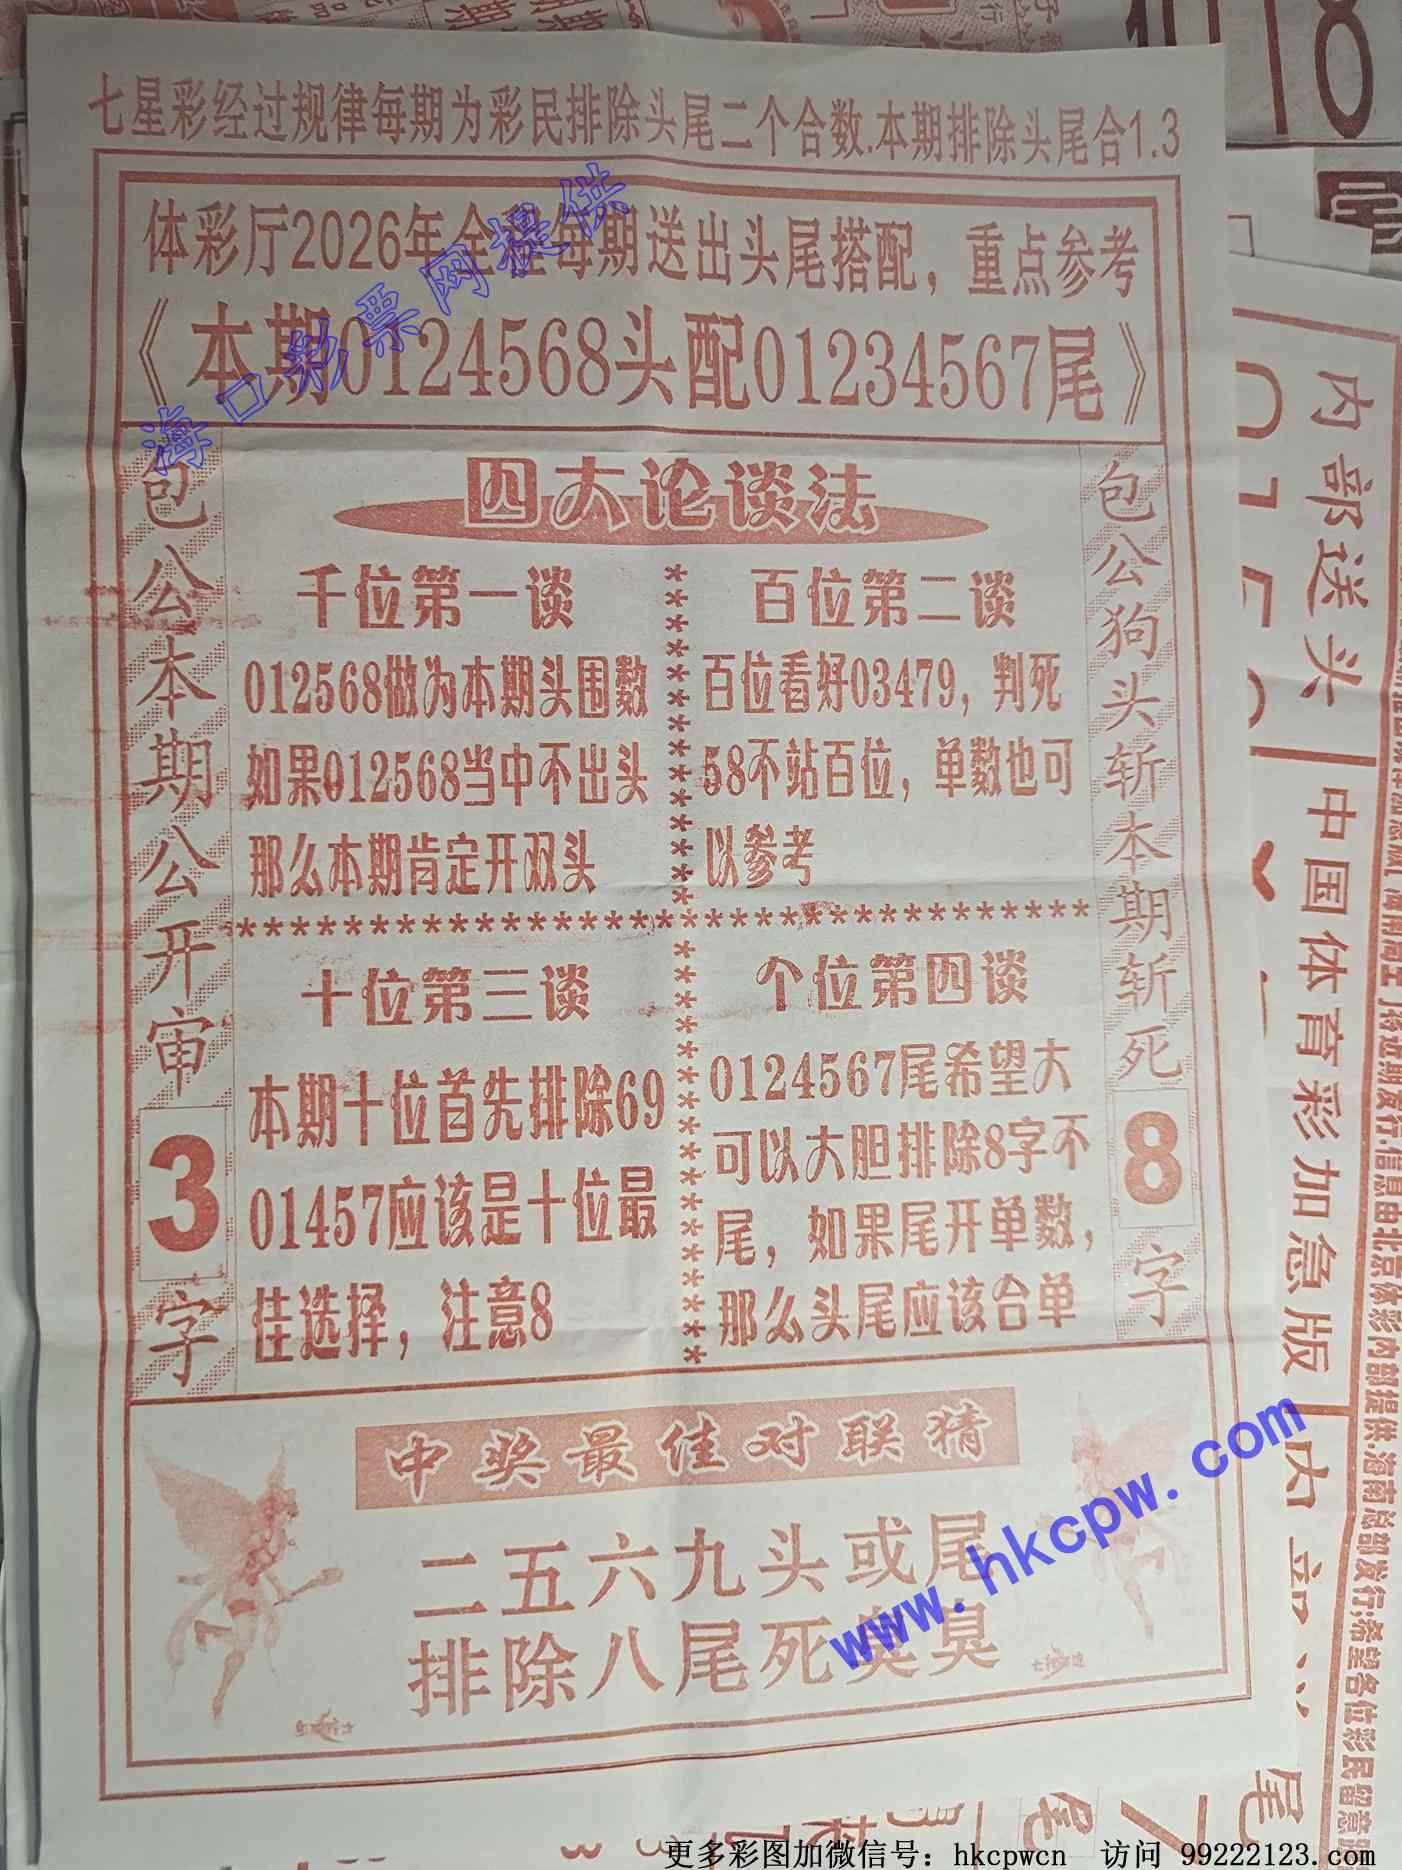 七星彩经过规律每期为彩民排除头尾二个合数.本期排除头尾合1.3
体彩厅2026年全程每期送出头尾搭配，重点参考
《本期0124568头配01234567尾》
海口彩票网提供
包公本期公开审3字
四大论谈法
千位第一谈
012568做为本期头围数
如果012568当中不出头
那么本期肯定开双头
百位第二谈
百位看好03479，判死
58不站百位，单数也可
以参考
十位第三谈
本期十位首先排除69
01457应该是十位最
佳选择，注意8
个位第四谈
0124567尾希望大
可以大胆排除8字不
尾，如果尾开单数，
那么头尾应该合单
包公狗头斩本期斩死8字
中奖最佳对联猜
二五六九头或尾
排除八尾死臭臭
www.hkcpw.com
内部送头
中国体育彩加急版
更多彩图加微信号：hkcpwcn 访问 99222123.com